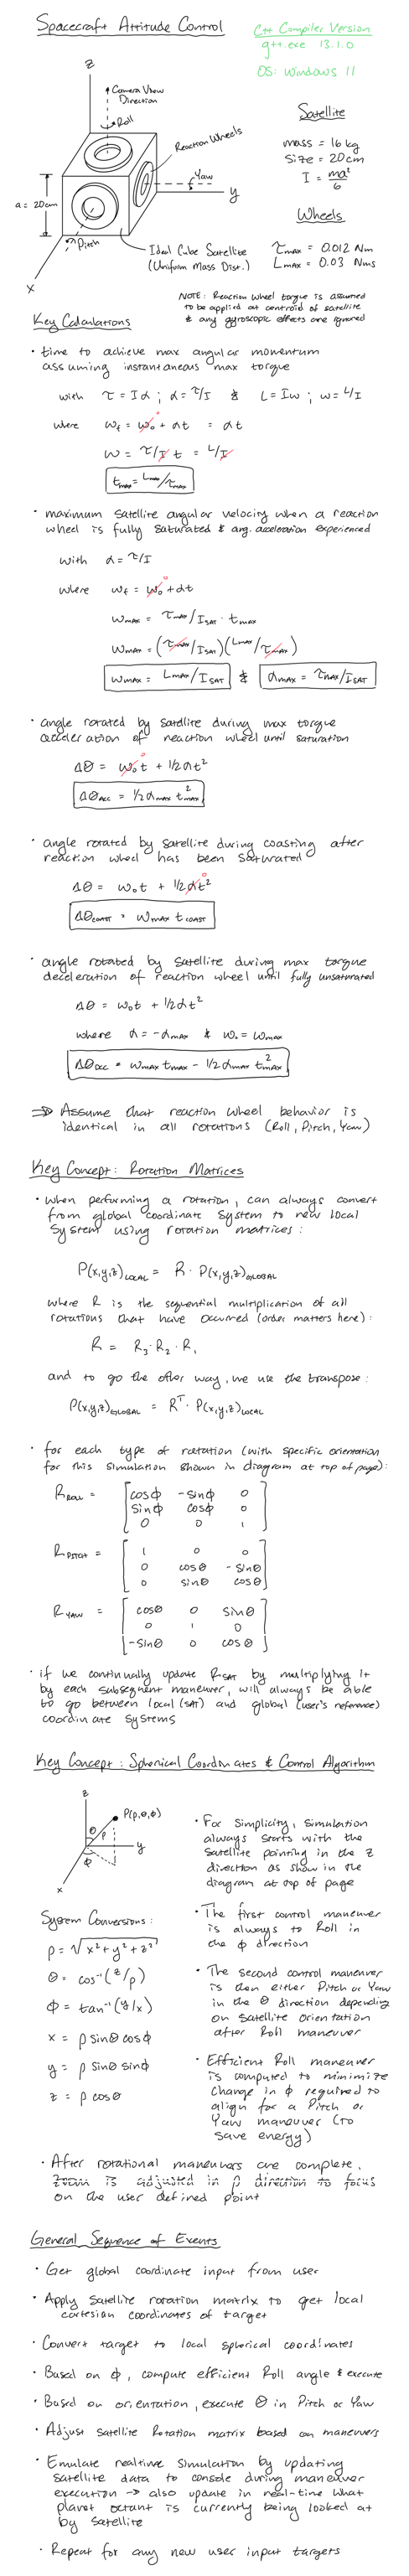 Spacecraft Attitude Control
C++ Compiler Version
g++.exe 13.1.0
OS: Windows 11
Z
Camera View
Direction
Roll
Reaction Wheels
Yaw
y
a = 20cm
Pitch
X
Ideal Cube Satellite
(Uniform Mass Dist.)
Satellite
mass = 16 kg
Size = 20cm
I = ma²/6
Wheels
τmax = 0.012 Nm
Lmax = 0.03 Nms
NOTE: Reaction wheel torque is assumed
to be applied at centroid of satellite
& any gyroscopic effects are ignored
Key Calculations
• time to achieve max angular momentum
assuming instantaneous max torque
with τ = Iα ; α = τ/I & L = Iω ; ω = L/I
where ωf = ω₀ + αt = αt
0
ω = τ/I t = L/I
tmax = Lmax/τmax
• maximum satellite angular velocity when a reaction
wheel is fully saturated & ang. acceleration experienced
with α = τ/I
where ωf = ω₀ + αt
0
ωmax = τmax/ISAT · tmax
ωmax = (τmax/ISAT)(Lmax/τmax)
ωmax = Lmax/ISAT & αmax = τmax/ISAT
• angle rotated by satellite during max torque
acceleration of reaction wheel until saturation
ΔΘ = ω₀t + 1/2 αt²
0
ΔΘACC = 1/2 αmax t²max
• angle rotated by satellite during coasting after
reaction wheel has been saturated
ΔΘ = ω₀t + 1/2 αt²
0
ΔΘCOAST = ωmax tCOAST
• angle rotated by satellite during max torque
deceleration of reaction wheel until fully unsaturated
ΔΘ = ω₀t + 1/2 αt²
where α = -αmax & ω₀ = ωmax
ΔΘDEC = ωmax tmax - 1/2 αmax t²max
⇒ Assume that reaction wheel behavior is
identical in all rotations (Roll, Pitch, Yaw)
Key Concept: Rotation Matrices
• when performing a rotation, can always convert
from global coordinate system to new local
system using rotation matrices:
P(x,y,z)LOCAL = R · P(x,y,z)GLOBAL
where R is the sequential multiplication of all
rotations that have occurred (order matters here):
R = R₃·R₂·R₁
and to go the other way, we use the transpose:
P(x,y,z)GLOBAL = Rᵀ · P(x,y,z)LOCAL
• for each type of rotation (with specific orientation
for this simulation shown in diagram at top of page):
RROLL = [cosϕ -sinϕ 0
sinϕ cosϕ 0
0 0 1]
RPITCH = [1 0 0
0 cosΘ -sinΘ
0 sinΘ cosΘ]
RYAW = [cosΘ 0 sinΘ
0 1 0
-sinΘ 0 cosΘ]
• if we continually update RSAT by multiplying it
by each subsequent maneuver, will always be able
to go between local (SAT) and global (user's reference)
coordinate systems
Key Concept: Spherical Coordinates & Control Algorithm
z
P(ρ,Θ,ϕ)
Θ
ρ
y
ϕ
x
System Conversions:
ρ = √x²+y²+z²
Θ = cos⁻¹(z/ρ)
ϕ = tan⁻¹(y/x)
x = ρ sinΘ cosϕ
y = ρ sinΘ sinϕ
z = ρ cosΘ
• For simplicity, simulation
always starts with the
satellite pointing in the z
direction as show in the
diagram at top of page
• The first control maneuver
is always to Roll in
the ϕ direction
• The second control maneuver
is then either Pitch or Yaw
in the Θ direction depending
on satellite orientation
after Roll maneuver
• Efficient Roll maneuver
is computed to minimize
change in ϕ required to
align for a Pitch or
Yaw maneuver (to
save energy)
• After rotational maneuvers are complete,
zoom is adjusted in ρ direction to focus
on the user defined point
General Sequence of Events
• Get global coordinate input from user
• Apply satellite rotation matrix to get local
cartesian coordinates of target
• Convert target to local spherical coordinates
• Based on ϕ, compute efficient Roll angle & execute
• Based on orientation, execute Θ in Pitch or Yaw
• Adjust Satellite Rotation matrix based on maneuvers
• Emulate realtime simulation by updating
satellite data to console during maneuver
execution → also update in real-time what
planet octant is currently being looked at
by satellite
• Repeat for any new user input targets